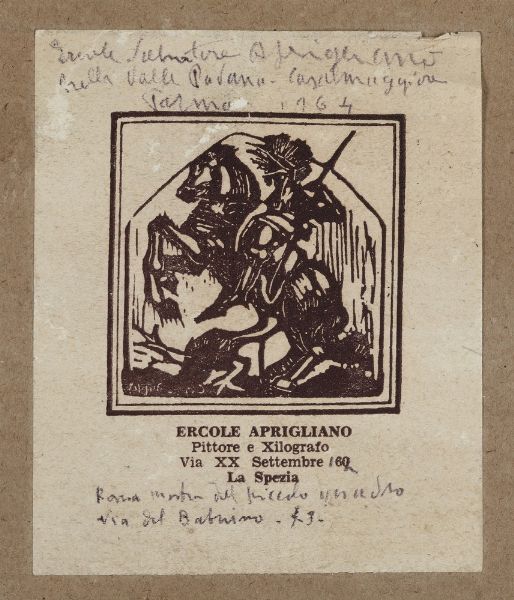 Ercole Salvatore Aprigliano
nella Valle Padana - Casalmaggiore
Parma 1964
ERCOLE APRIGLIANO
Pittore e Xilografo
Via XX Settembre 160
La Spezia
Roma mostra del piccolo quadro
via del Babuino -